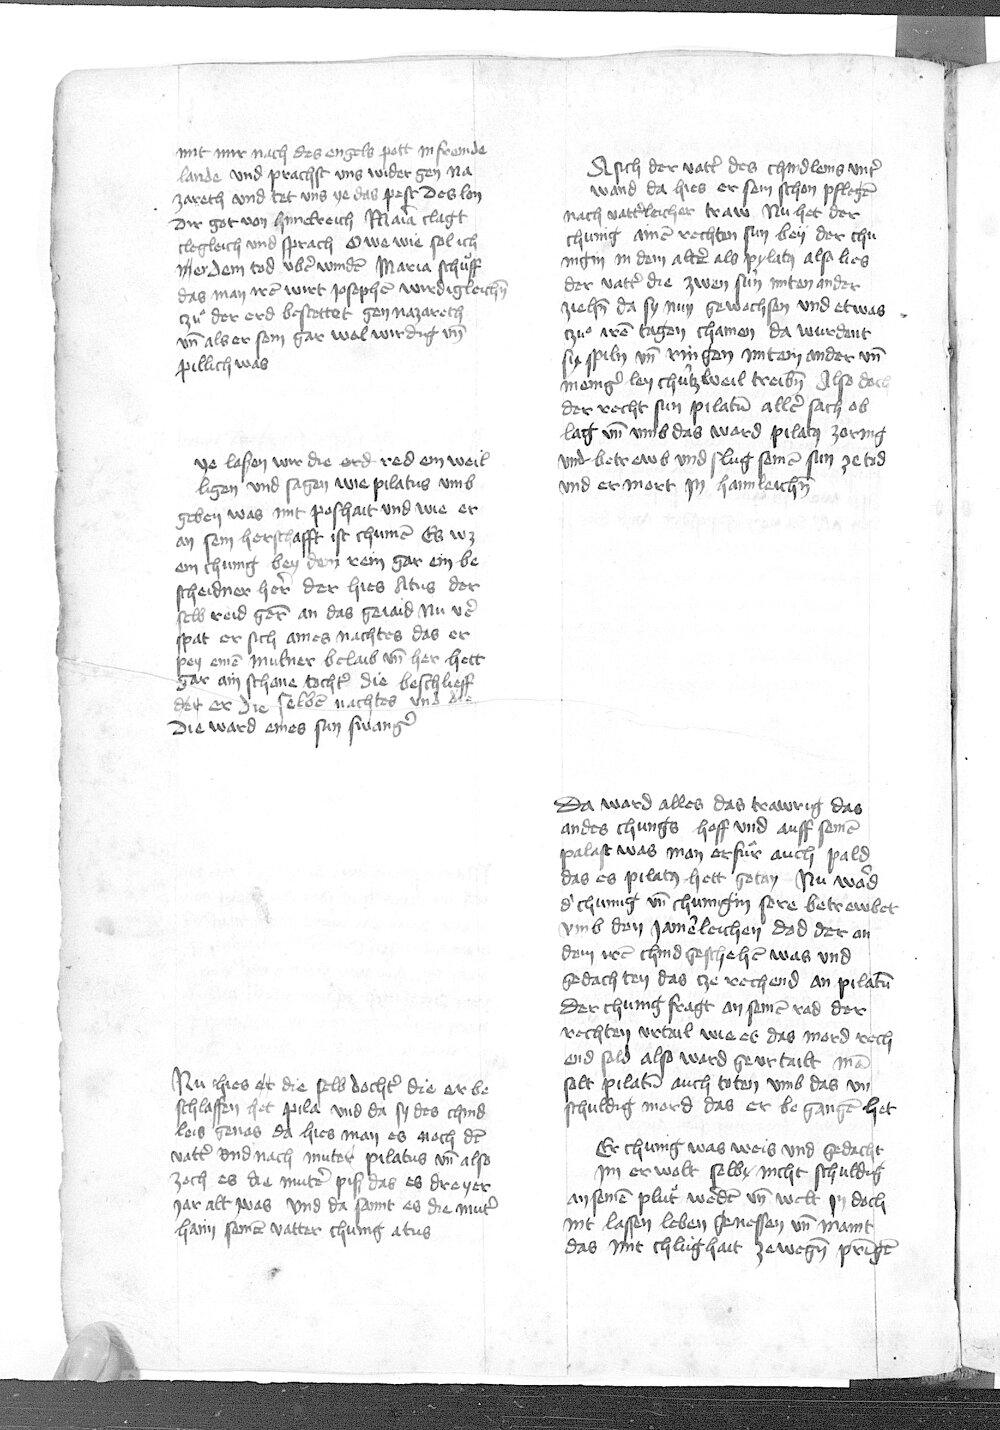 mit mir nach des engels pott in fremde
lande vnd prachst vns wider gen na
zareth vnd tet vns ye das pest Des lon
dir got von himelreich Maria clagt
clegleich vnd sprach O we wie sol ich
mer dem tod vberwinden Maria schuff
das man iren wirt josephen wirdigleichn̄
czu der erd bestettet gen nazareth
vn̄ als er sein gar wol wirdig vn̄
pillich was
ye lassen wir die erd red ein weil
ligen vnd sagen wie pilatus vmb
geben was mit poshait vnd wie er
an sein herschafft ist chumē Es wz
ein chunig bey dem rein gar ein be
scheidner her der hies Atus der
selb reid gerē an das geiaid Nu ver
spat er sich aines nachtes das er
pey einē mulner belaib vn̄ her hett
gar ain schone tocht' die beschlieff
der er die selbē nachtes vnd die
die ward eines sun swang'
Nu hies er die selb docht' die er be
schlaffen het pila vnd da sy des chind
leis genas da hies man es nach dē
vatt' vnd nach muter pilatus vn̄ also
zoch es die mut' pis das es dreyer
jar alt was vnd da sannt es die mut'
haim seinē vatter chunig atus
A sich der vatt' des chindleins vnt'
wand da hies er sein schon pflegē
nach vatt'leicher traw Nu het der
chunig ainē rechten sun bey der chu
nigin in dem alter als pylatus also lies
der vatt' die zwen sun miten ander
ziehn̄ da sy nun gewachsen vnd etwas
czu iren tagen chamen da wurdent
sy spiln vn̄ ringen miteinander vn̄
meniger ley churtzweil treibn̄ Also doch
der recht sun pilatū aller sach ob
lag vn̄ vmb das ward pilatus zornig
vnd betrewb vnd slug seinē sun ze tod
vnd ermort jn haimleichn̄
Da ward alles das trawrig das
an des chungs hoff vnd auff seinē
palast was man erfur auch pald
das es pilatus hett getan Nu ward
d' chunig vn̄ chunigin sere betrewbet
vmb den jamerleichen dod der an
dem irē chind geschehē was vnd
gedachten das cze rechend an pilatū
Der chunig fragt an seinē rad der
rechten vrtail wie er das mord rech
end sold also ward geurtailt mā
solt pilatū auch toten vmb das vn
schuldig mord das er begangē het
Er chunig was weis vnd gedacht
jm er wolt selbs nicht schuldig
an seinē plut werdē vn̄ wolt jn doch
nit lassen leben genessen vn̄ maint
das mit chlughait zewegn̄ pringē